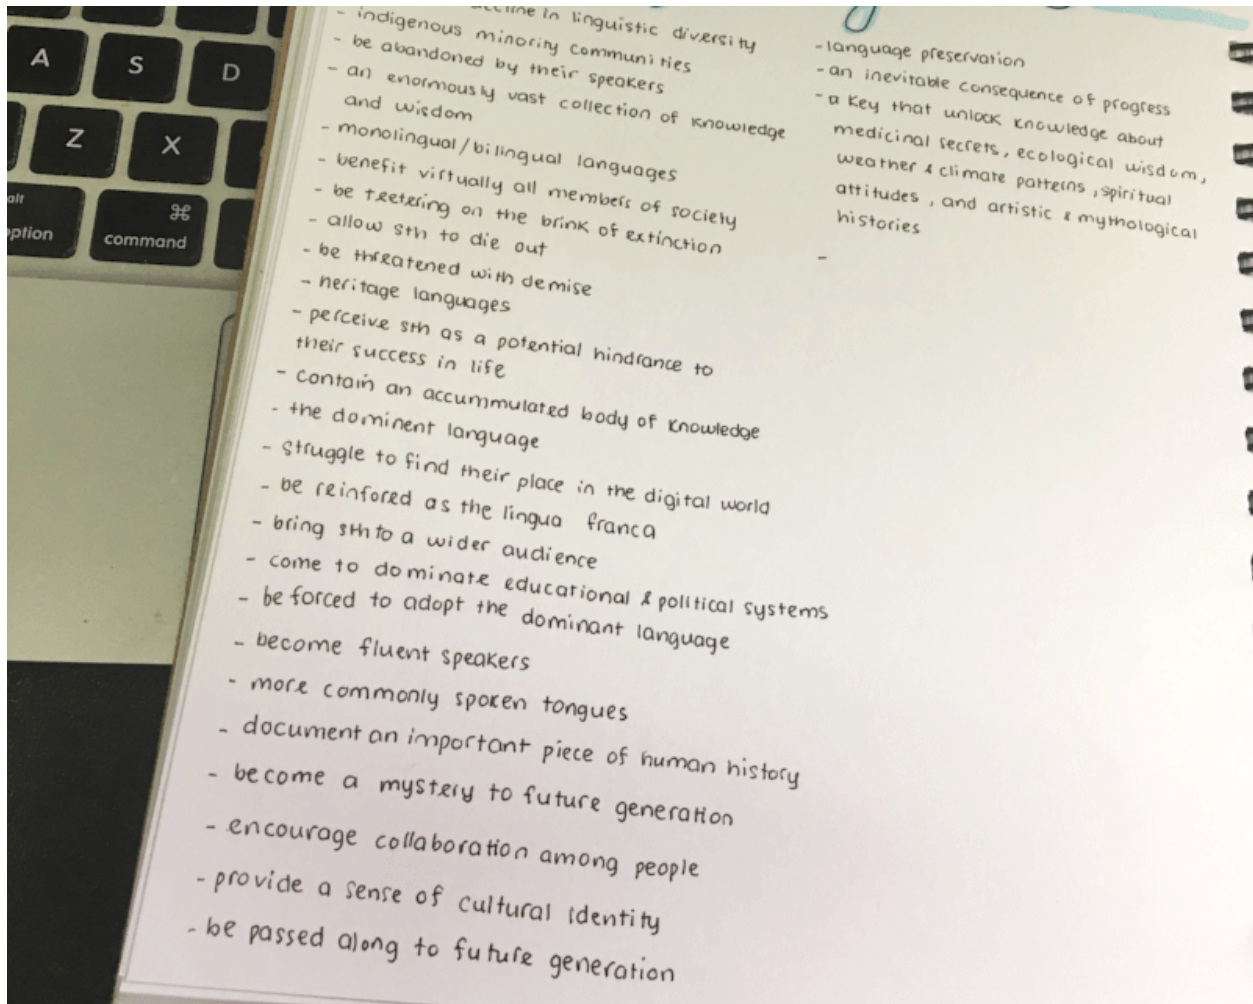 A
S
D
Z
X
alt
option
⌘
command
decline in linguistic diversity
- indigenous minority communities
- be abandoned by their speakers
- an enormously vast collection of knowledge
and wisdom
- monolingual/bilingual languages
- benefit virtually all members of society
- be teetering on the brink of extinction
- allow sth to die out
- be threatened with demise
- heritage languages
- perceive sth as a potential hindrance to
their success in life
- contain an accummulated body of knowledge
- the dominent language
- struggle to find their place in the digital world
- be reinfored as the lingua franca
- bring sth to a wider audience
- come to dominate educational & political systems
- be forced to adopt the dominant language
- become fluent speakers
- more commonly spoken tongues
- document an important piece of human history
- become a mystery to future generation
- encourage collaboration among people
- provide a sense of cultural identity
- be passed along to future generation
- language preservation
- an inevitable consequence of progress
- a key that unlock knowledge about
medicinal secrets, ecological wisdom,
weather & climate patterns, spiritual
attitudes, and artistic & mythological
histories
-